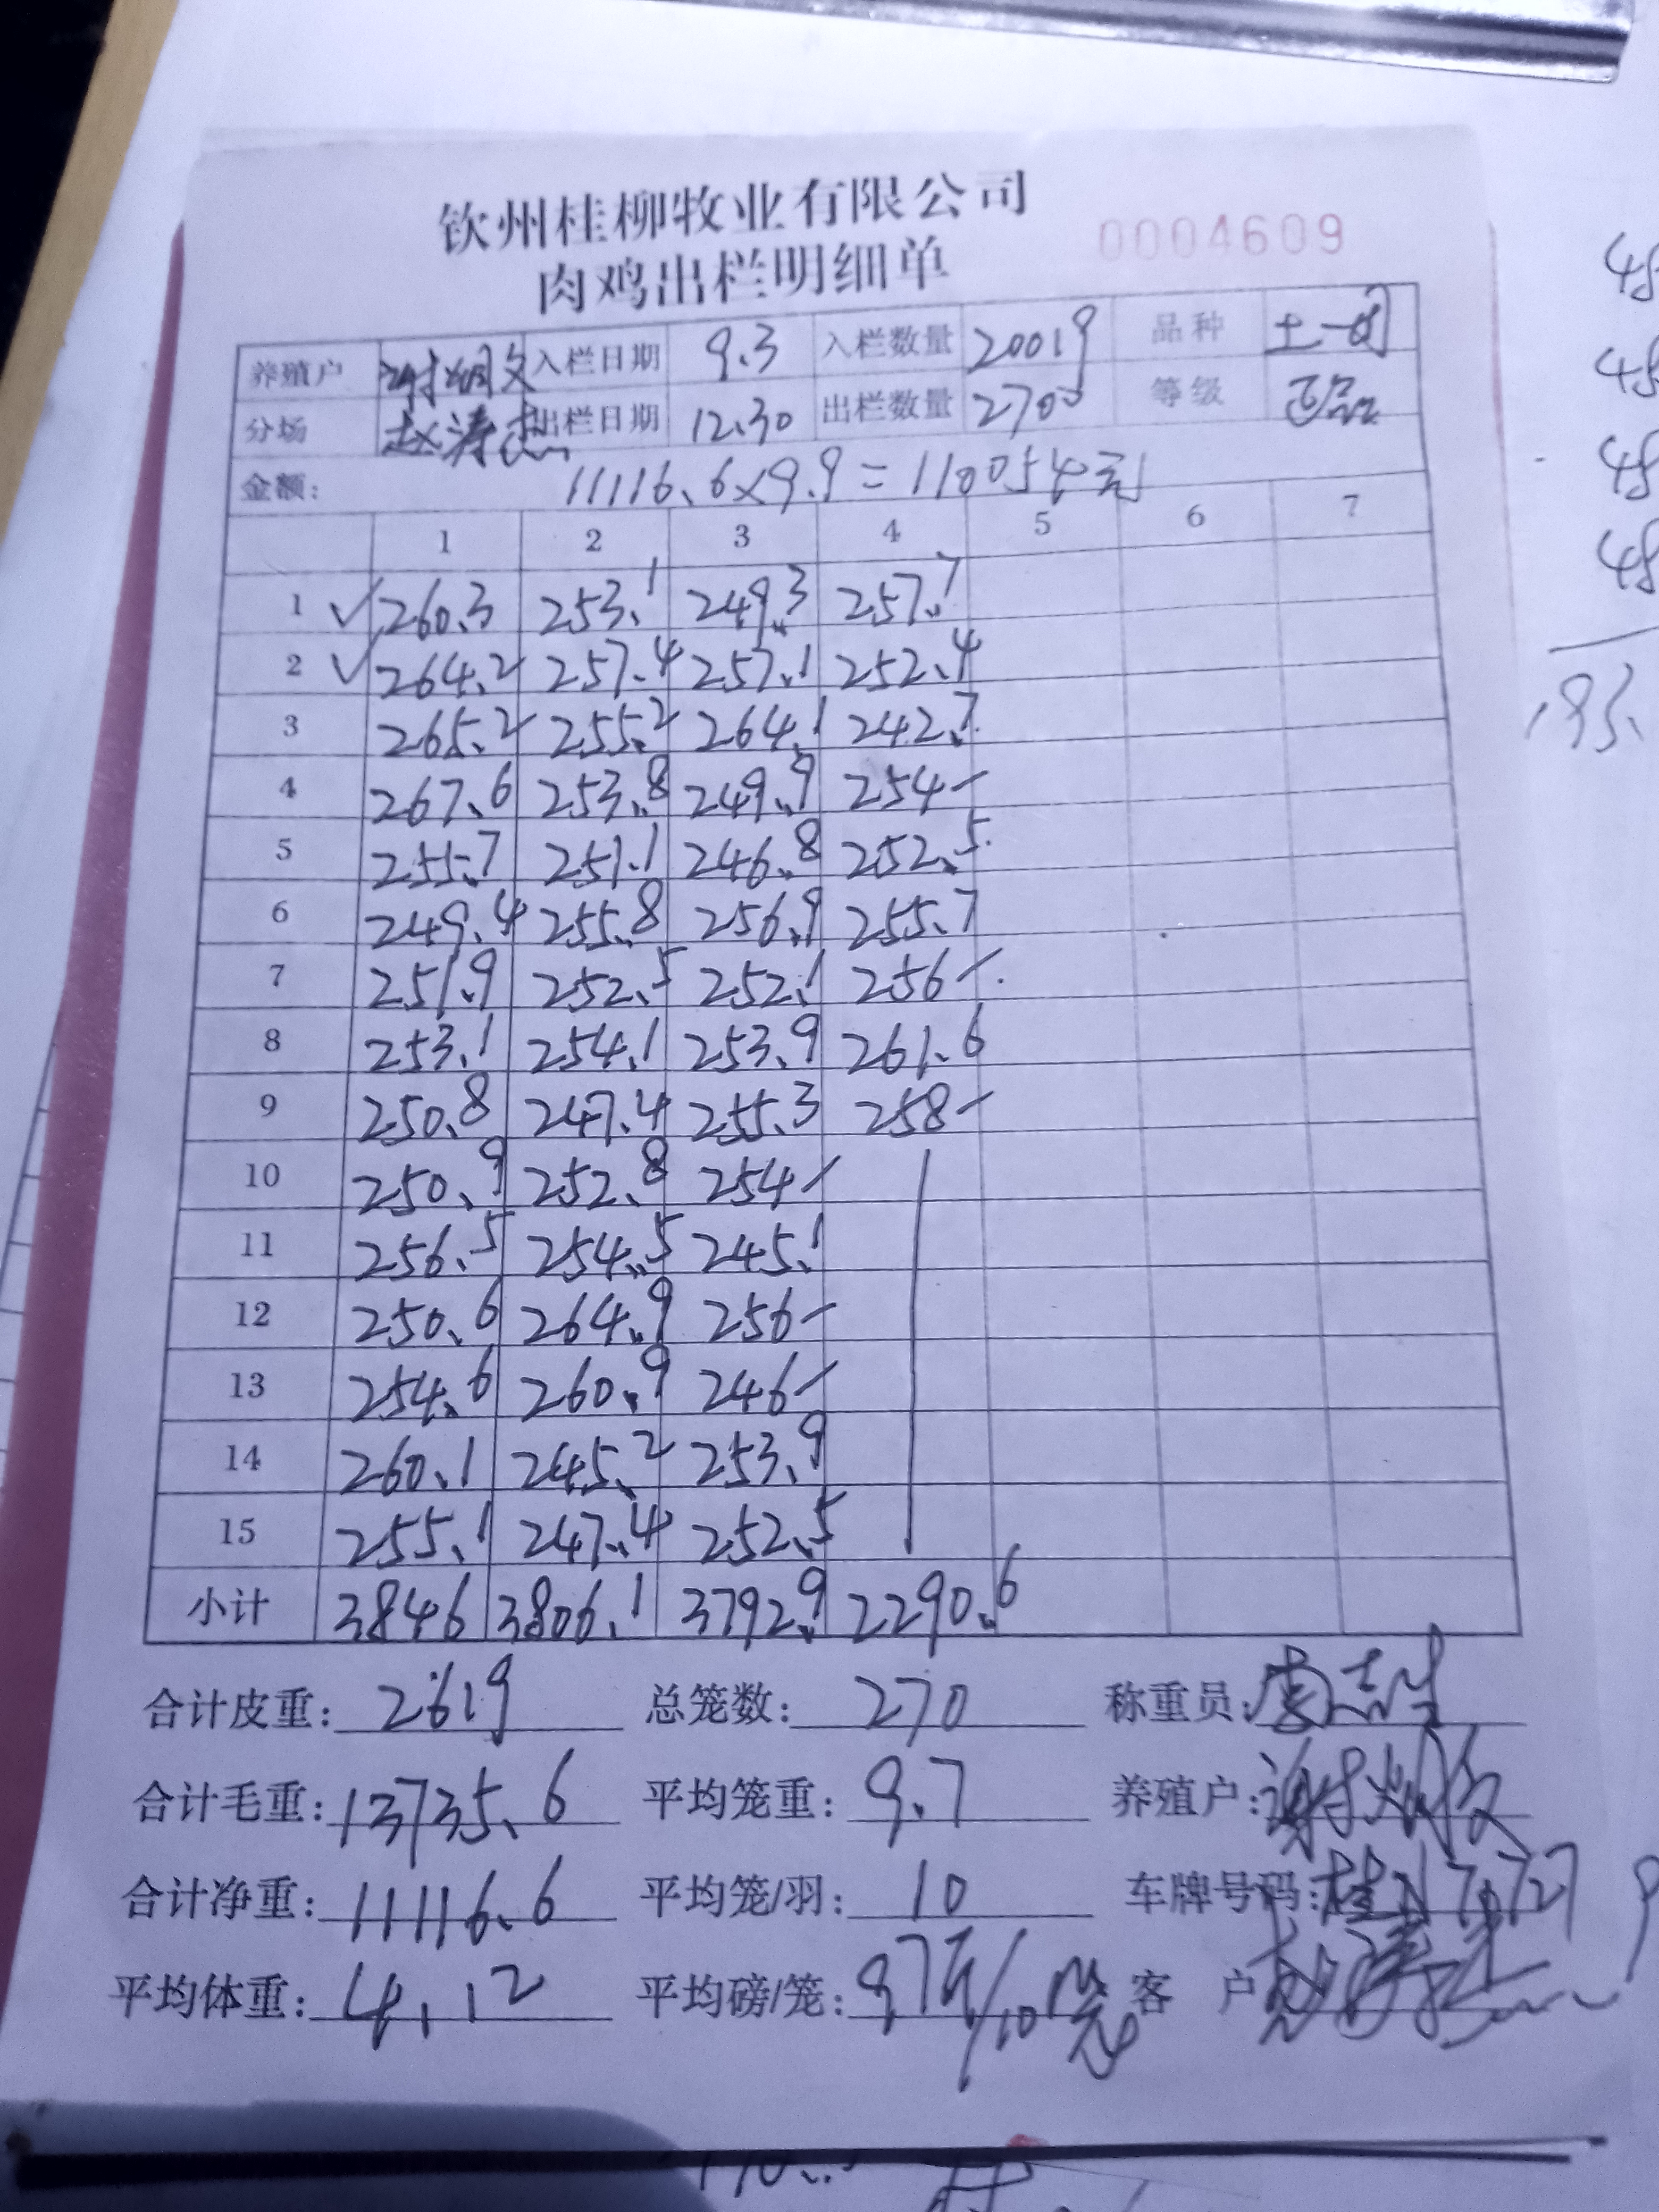 钦州桂柳牧业有限公司
肉鸡出栏明细单
0004609
养殖户 入栏日期 9.3 入栏数量 20019 品种 土一
分场 赵涛杰 出栏日期 12.30 出栏数量 2700 等级 正品
金额: 11116.6×9.9=110054元
1 2 3 4 5 6 7
1 ✓ 260.3 253.1 249.3 257.7
2 ✓ 264.2 257.4 257.1 252.4
3 265.2 255.2 264.1 242.7
4 267.6 253.8 249.9 254-
5 255.7 251.1 246.8 252.5
6 249.4 255.8 256.9 255.7
7 251.9 252.5 252.1 256-
8 253.1 254.1 253.9 261.6
9 250.8 247.4 255.3 258-
10 250.9 252.8 254-
11 256.5 254.5 245.1
12 250.6 264.9 256-
13 254.6 260.9 246-
14 260.1 245.2 253.9
15 255.1 247.4 252.5
小计 3846 3806.1 3792.9 2290.6
合计皮重: 2619 总笼数: 270 称重员:
合计毛重: 13735.6 平均笼重: 9.7 养殖户:
合计净重: 11116.6 平均笼/羽: 10 车牌号码:
平均体重: 4.12 平均磅/笼: 客 户
48
48
48
48